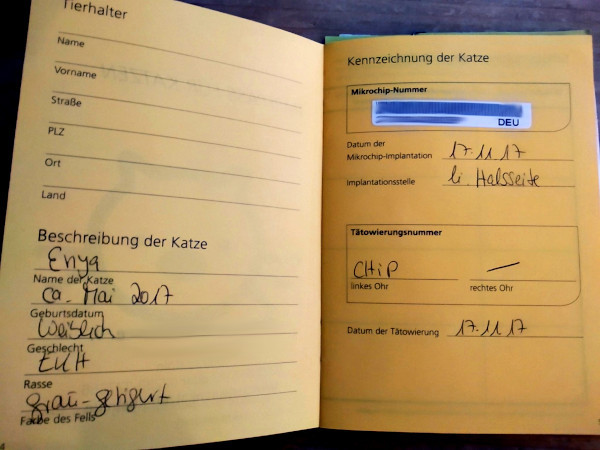 Tierhalter
Name
Vorname
Straße
PLZ
Ort
Land
Beschreibung der Katze
Enya
Name der Katze
ca. Mai 2017
Geburtsdatum
Weiblich
Geschlecht
EKH
Rasse
grau-getigert
Farbe des Fells
4
Kennzeichnung der Katze
Mikrochip-Nummer
DEU
Datum der
Mikrochip-Implantation 17.11.17
Implantationsstelle li. Halsseite
Tätowierungsnummer
CHiP –
linkes Ohr rechtes Ohr
Datum der Tätowierung 17.11.17